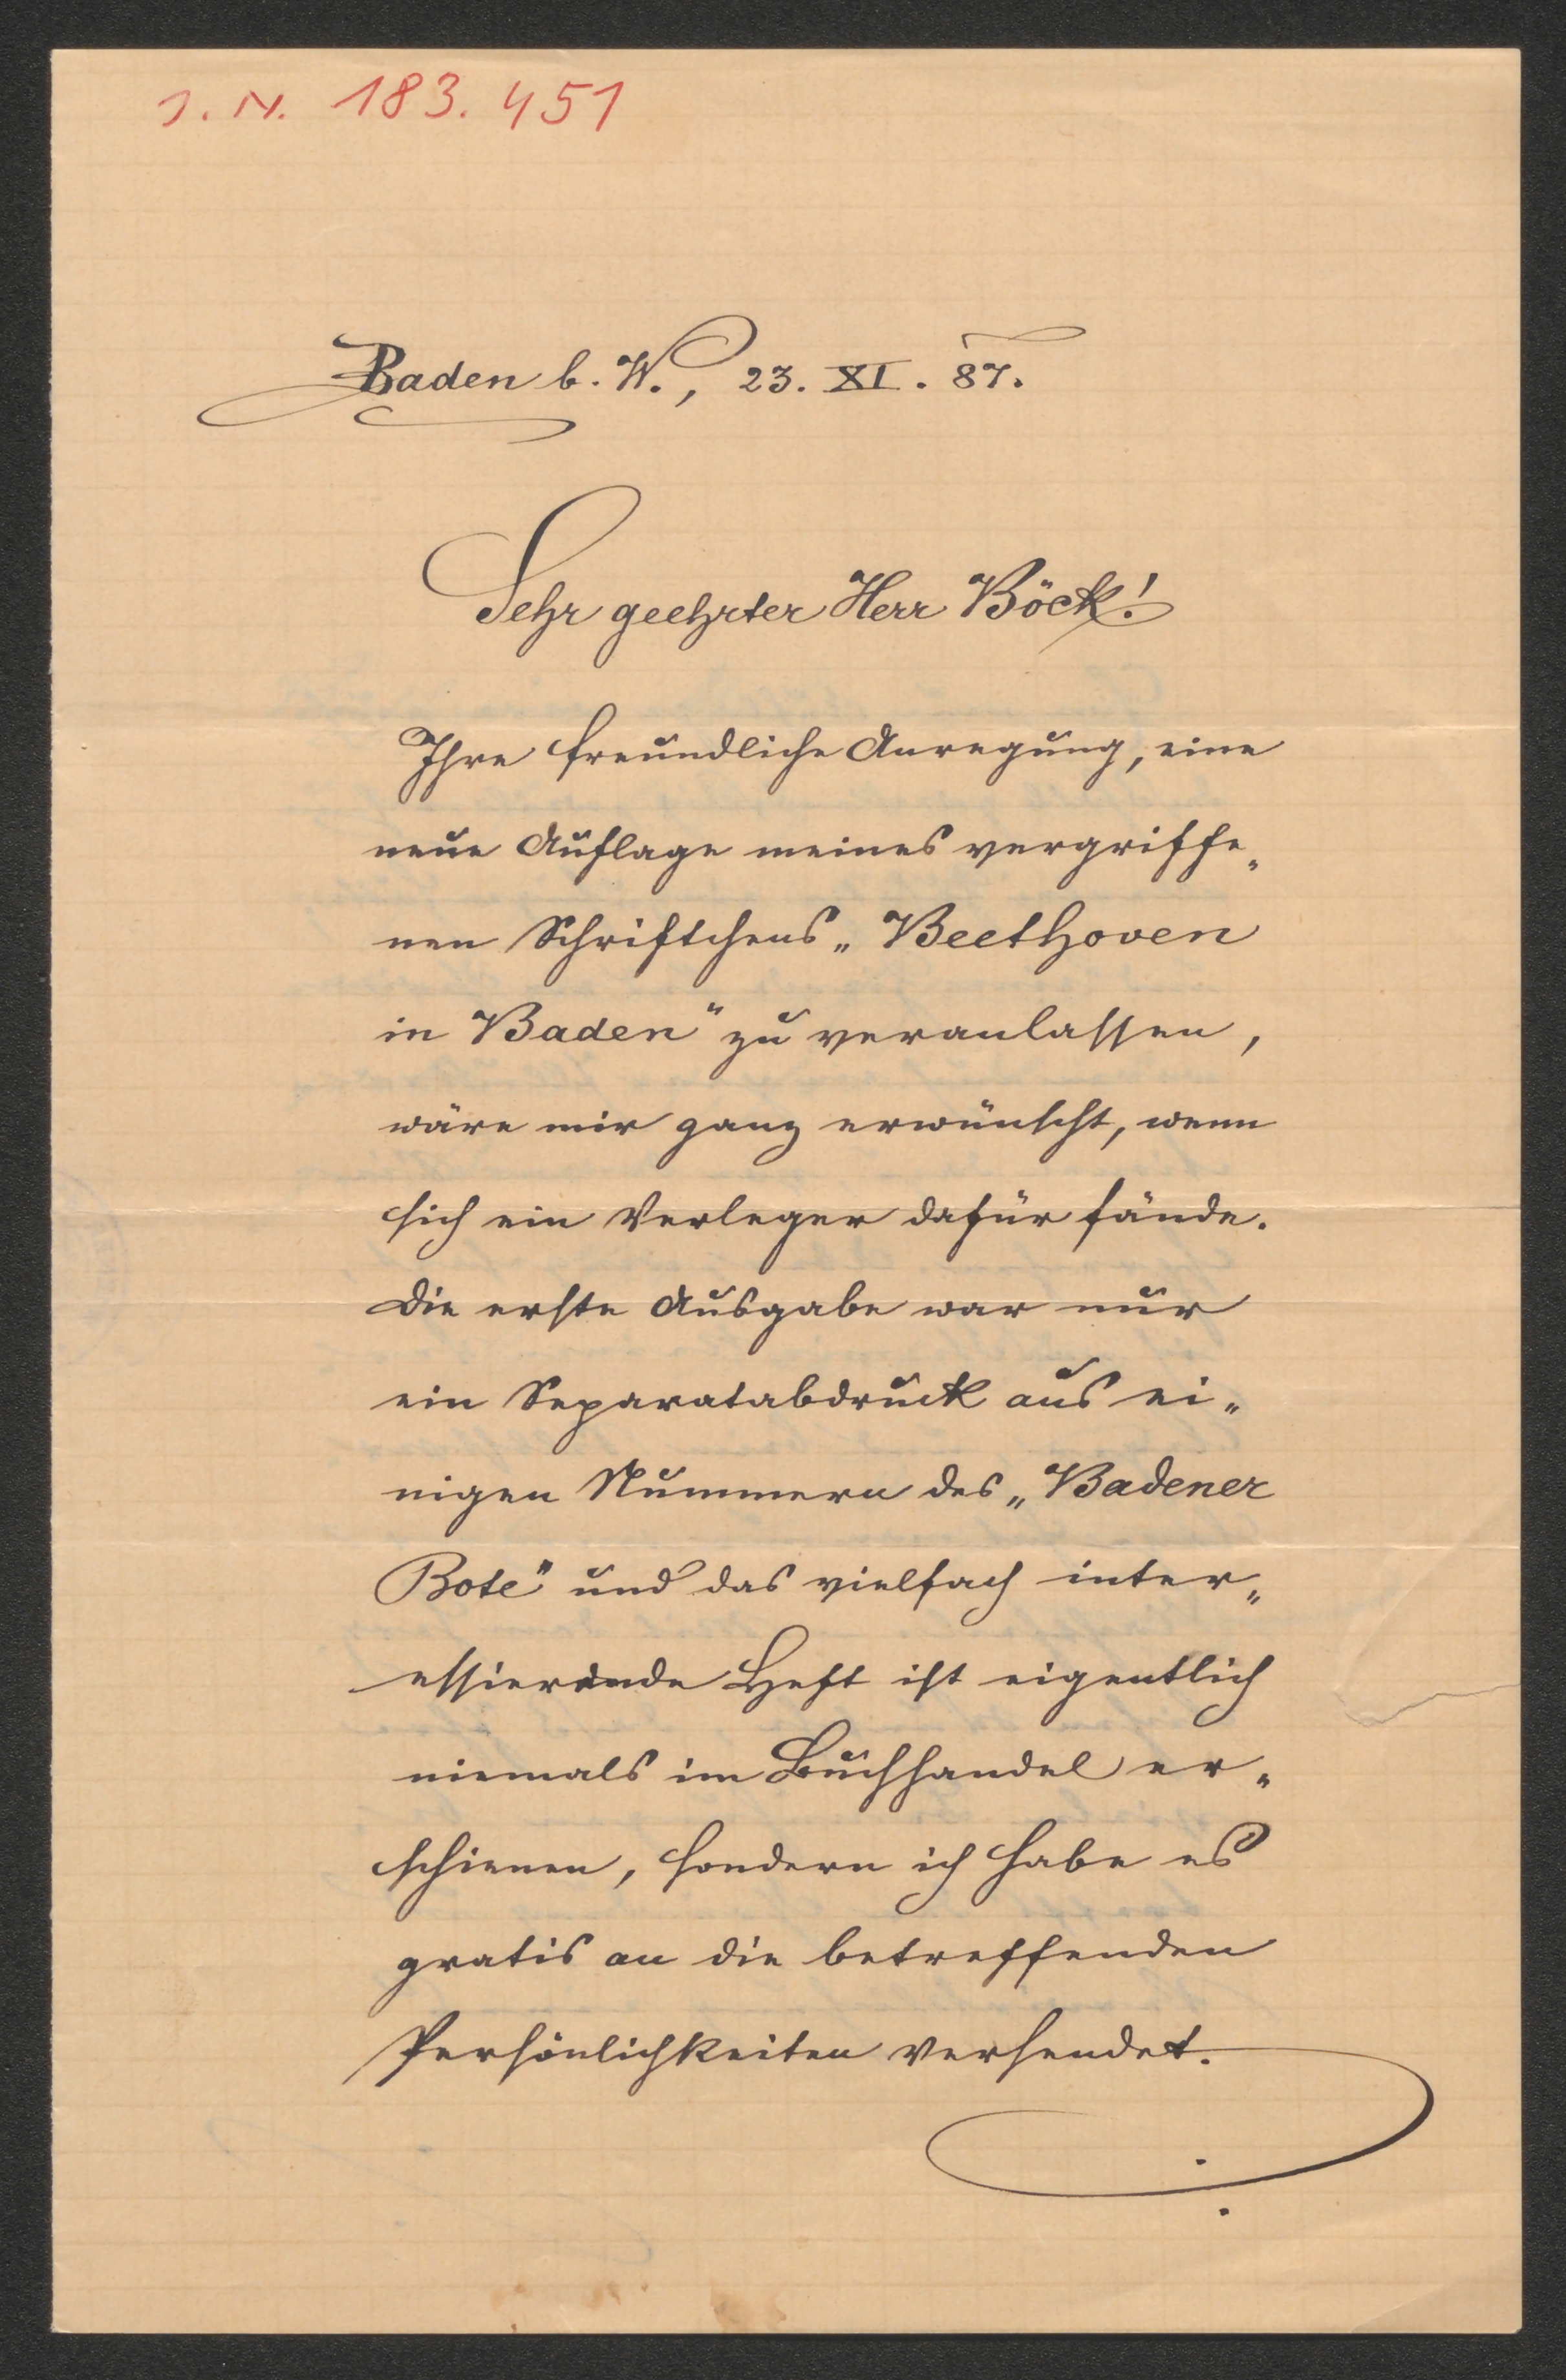 J. N. 183.451
Baden b. W., 23. XI. 87.
Sehr geehrter Herr Böck!
Ihre freundliche Anregung, eine
neue Auflage meines vergriffe„
nen Schriftchens „Beethoven
in Baden" zu veranlassen,
wäre mir ganz erwünscht, wenn
sich ein Verleger dafür fände.
Die erste Ausgabe war nur
ein Separatabdruck aus ei„
nigen Nummern des „Badener
Bote" und das vielfach inter„
essierende Heft ist eigentlich
niemals im Buchhandel er„
schienen, sondern ich habe es
gratis an die betreffenden
Persönlichkeiten versendet.